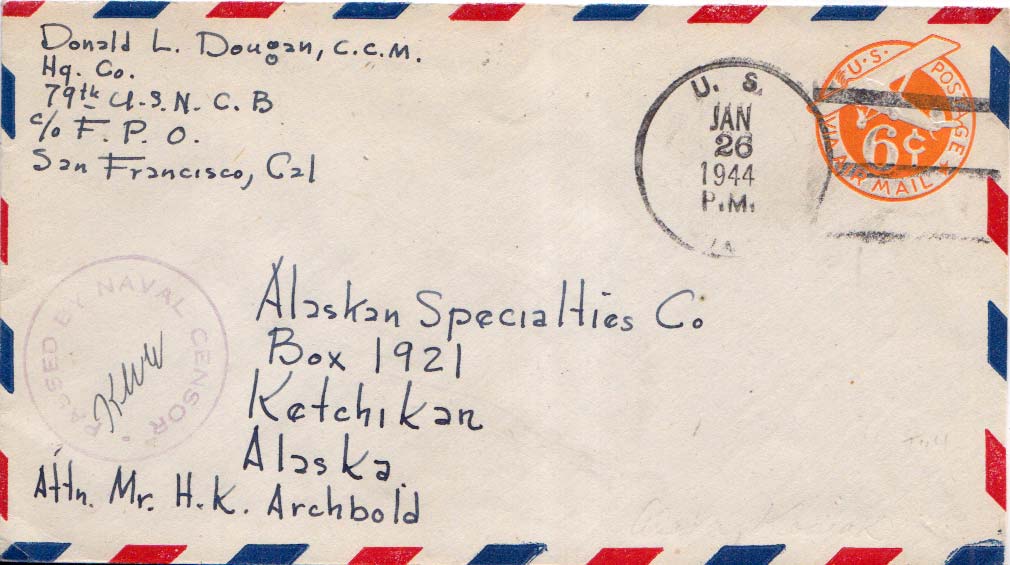 Donald L. Dougan, C.C.M.
Hq. Co.
79th U.S.N.C.B
c/o F.P.O.
San Francisco, Cal
U. S.
JAN
26
1944
P.M.
U.S. POSTAGE
6¢
VIA AIR MAIL
PASSED BY NAVAL CENSOR
KWW
Alaskan Specialties Co
Box 1921
Ketchikan
Alaska.
Attn. Mr. H.K. Archbold